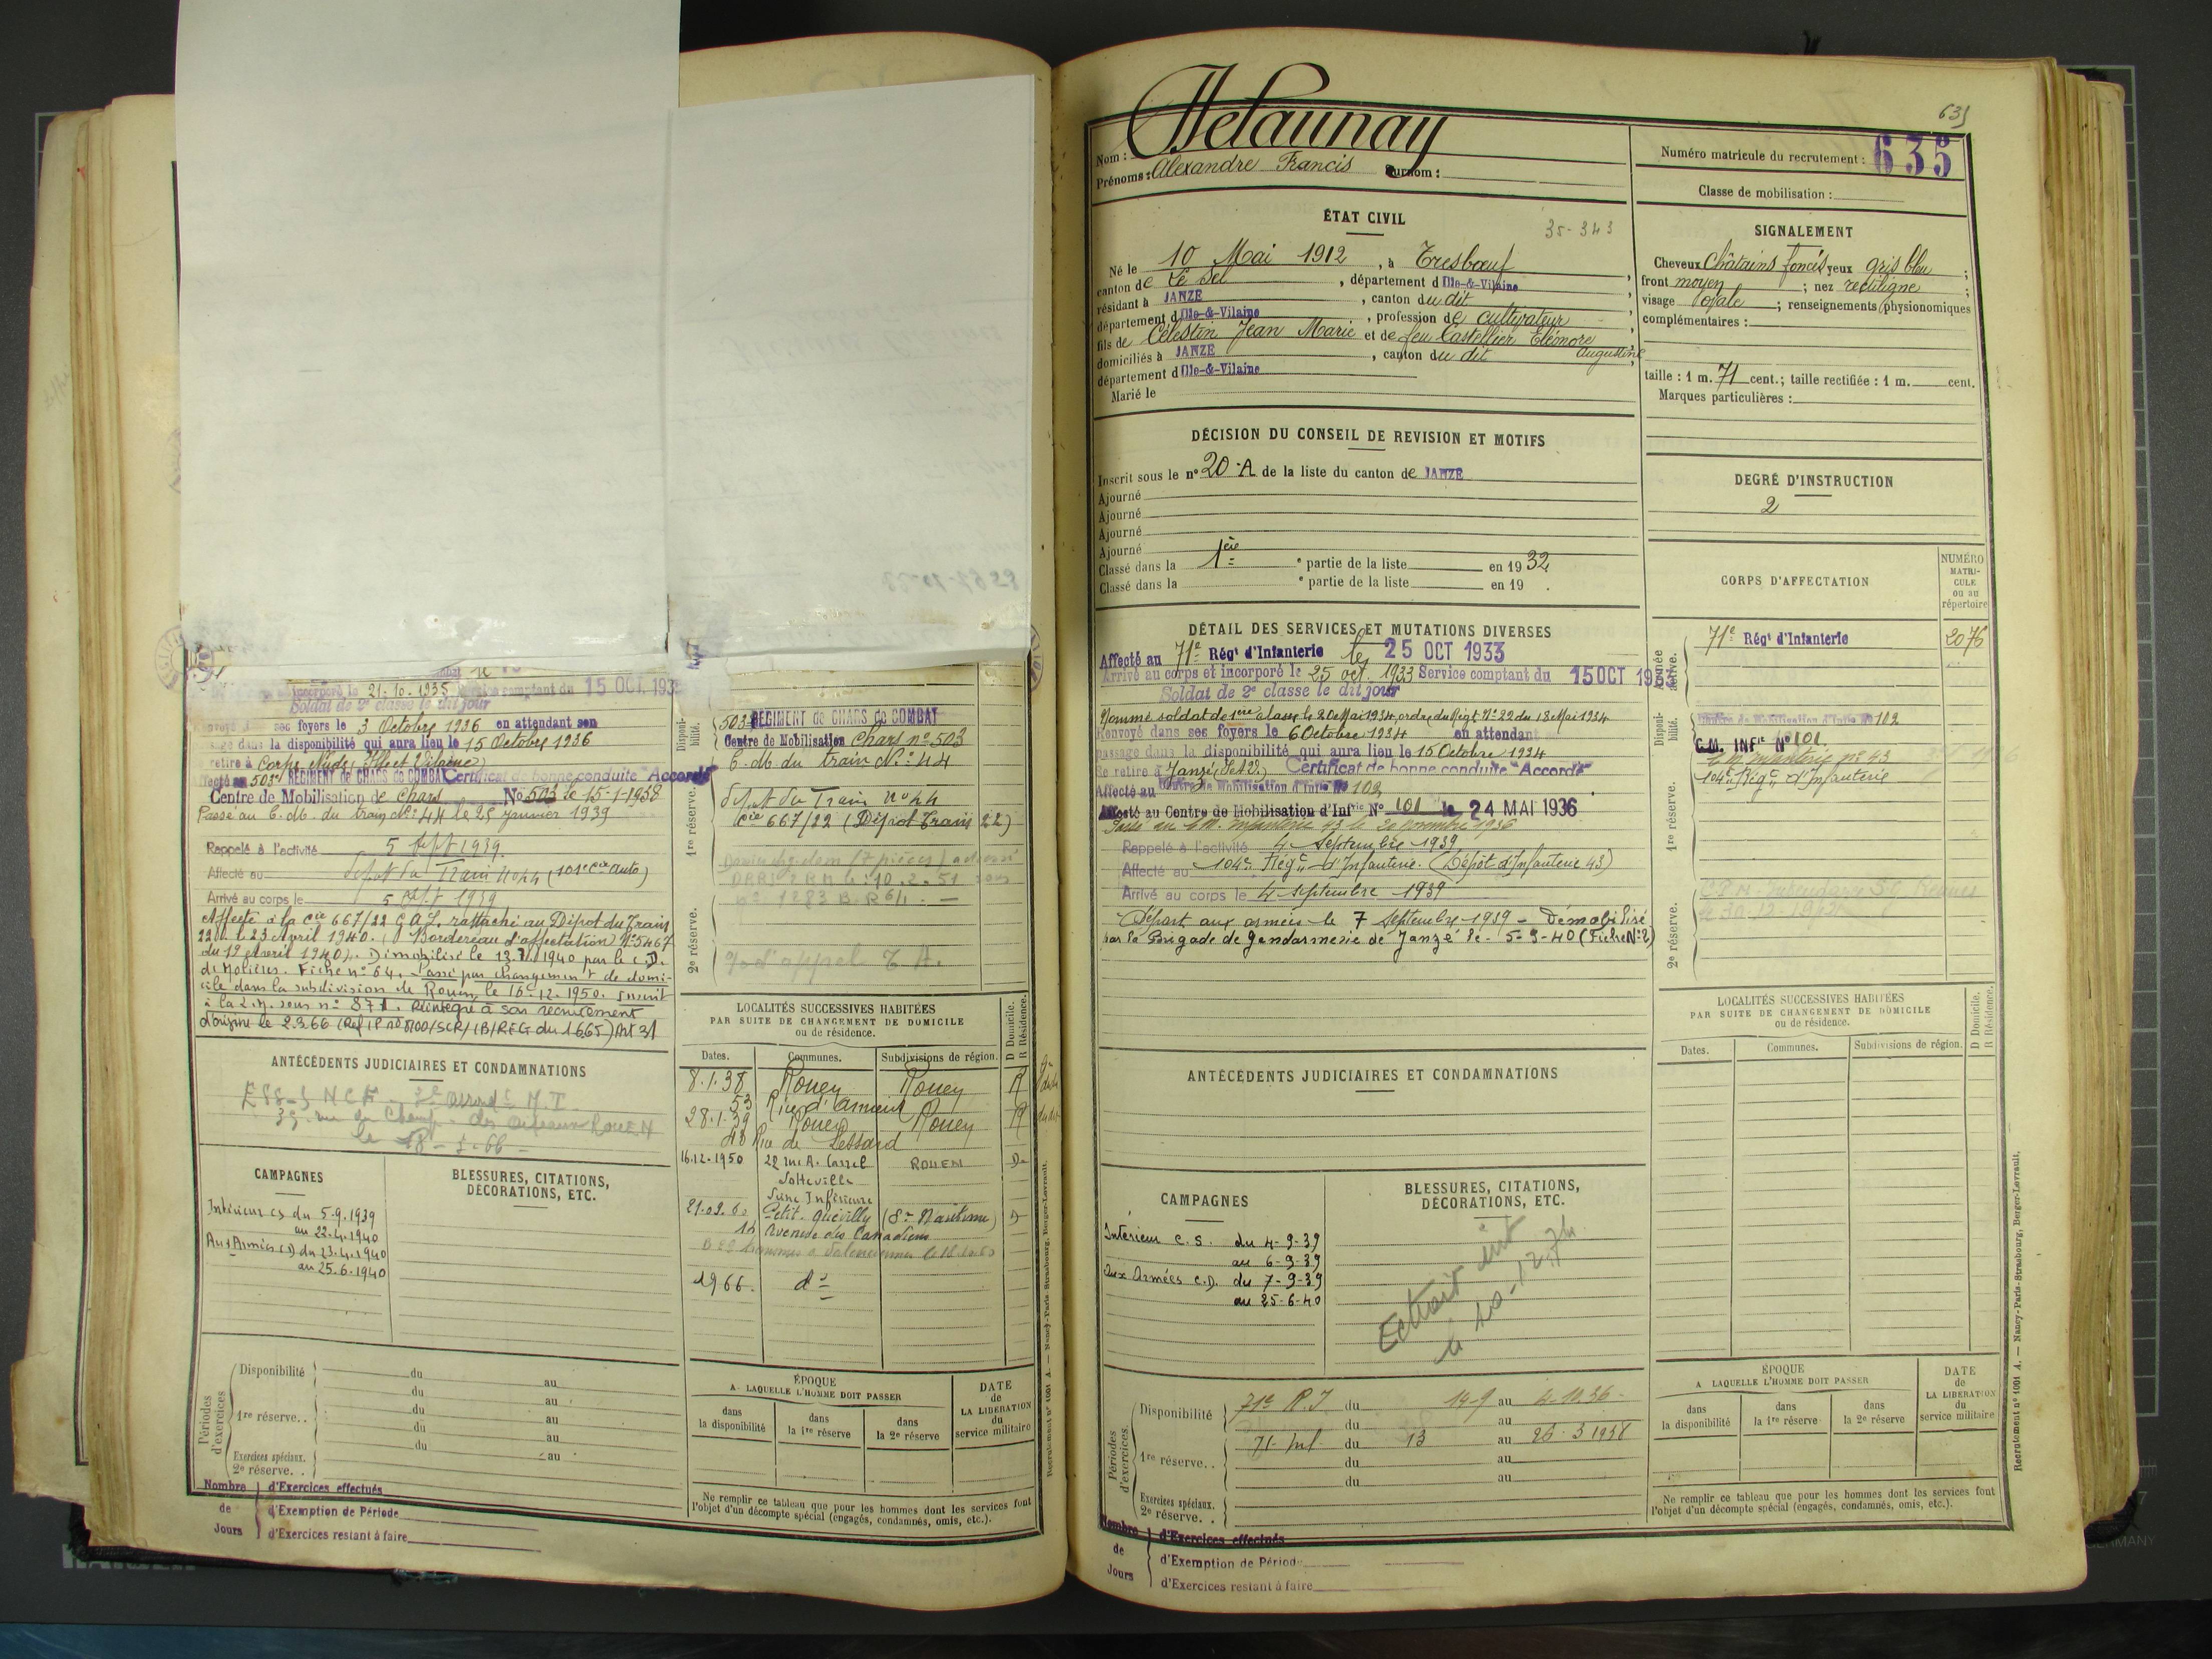 incorporé le 21-10-1935 comptant du 15 OCT. 193
Soldat de 2e classe le dit jour
ses foyers le 3 Octobre 1936 en attendant son
dans la disponibilité qui aura lieu le 15 Octobre 1936
retire à Corps Nuds (Ille et Vilaine)
503e RÉGIMENT de CHARS de COMBAT Certificat de bonne conduite "Accordé"
Centre de Mobilisation de chars No 503 le 15-1-1938
Passé au C. M. du train No 44 le 25 Janvier 1939
Rappelé à l'activité 5 Sept 1939
Affecté au Dépot du Train No 44 (101e Cie auto)
Arrivé au corps le 5 Sept 1939
Affecté à la Cie 667/22 rattaché au Dépot du Train
22 le 23 Avril 1940. (Bordereau d'affectation No 5467
du 19 Avril 1940). Démobilisé le 13.7.1940 par le C.D.
de Molières. Fiche no 64. Passé par changement de domi-
cile dans la subdivision de Rouen, le 16-12-1950. Inscrit
à la sous no 871. Réintégré à son recrutement
d'origine le 2.3.66
ANTÉCÉDENTS JUDICIAIRES ET CONDAMNATIONS
SNCF
rue du Champ des Oiseaux ROUEN
CAMPAGNES
BLESSURES, CITATIONS,
DÉCORATIONS, ETC.
Intérieur CS du 5.9.1939
au 22.4.1940
Aux Armées CD du 23.4.1940
au 25.6.1940
Périodes d'exercices
Disponibilité du au
du au
1re réserve.. du au
du au
du au
Exercices spéciaux. au
2e réserve. .
Nombre de Jours
d'Exercices effectués
d'Exemption de Période
d'Exercices restant à faire
Disponibilité.
1re réserve.
2e réserve.
503e RÉGIMENT de CHARS de COMBAT
Centre de Mobilisation Chars no 503
C. M. du train No 44
Dépot du Train no 44
Cie 667/22 (Dépot Train 22)
LOCALITÉS SUCCESSIVES HABITÉES
PAR SUITE DE CHANGEMENT DE DOMICILE
ou de résidence.
D Domicile.
R Résidence.
Dates. Communes. Subdivisions de région.
8.1.38 Rouen Rouen R
53 Rue d'Amiens
28.1.39 Rouen Rouen R
48 Rue de Lessard
16.12-1950 22 rue A. Carrel ROUEN D
Sotteville
Seine Inférieure
21.03.60 Petit-Quevilly D
14 Avenue des Canadiens
1966. do
ÉPOQUE
A LAQUELLE L'HOMME DOIT PASSER
DATE
de
LA LIBÉRATION
du
service militaire
dans
la disponibilité
dans
la 1re réserve
dans
la 2e réserve
Ne remplir ce tableau que pour les hommes dont les services font
l'objet d'un décompte spécial (engagés, condamnés, omis, etc.).
Recrutement no 1001 A. — Nancy-Paris-Strasbourg, Berger-Levrault.
635
Nom : Delaunay
Prénoms : Alexandre Francis Surnom :
Numéro matricule du recrutement : 635
Classe de mobilisation :
ÉTAT CIVIL
35-343
Né le 10 Mai 1912, à Tresbœuf,
canton de Le Sel, département d Ille-&-Vilaine
résidant à JANZÉ, canton du dit
département d Ille-&-Vilaine, profession de cultivateur
fils de Célestin Jean Marie et de feu Castellier Eléonore
Augustine
domiciliés à JANZÉ, canton du dit
département d Ille-&-Vilaine
Marié le
SIGNALEMENT
Cheveux Châtains foncés yeux gris bleu ;
front moyen ; nez rectiligne ;
visage ovale ; renseignements physionomiques
complémentaires :
taille : 1 m. 71 cent.; taille rectifiée : 1 m. cent.
Marques particulières :
DÉCISION DU CONSEIL DE REVISION ET MOTIFS
Inscrit sous le no 20-A de la liste du canton de JANZÉ
Ajourné
Ajourné
Ajourné
Ajourné
Classé dans la 1ère e partie de la liste en 1932
Classé dans la e partie de la liste en 19 .
DEGRÉ D'INSTRUCTION
2
DÉTAIL DES SERVICES ET MUTATIONS DIVERSES
Affecté au 71e Régt d'Infanterie le 25 OCT 1933
Arrivé au corps et incorporé le 25 oct. 1933 Service comptant du 15 OCT 1933
Soldat de 2e classe le dit jour
Nommé soldat de 1ère classe le 20 Mai 1934, ordre du Régt No 22 du 18 Mai 1934
Renvoyé dans ses foyers le 6 Octobre 1934 en attendant
passage dans la disponibilité qui aura lieu le 15 Octobre 1934
Se retire à Janzé (I et V.) Certificat de bonne conduite "Accordé"
Affecté au Centre de Mobilisation d'Infie No 102
Affecté au Centre de Mobilisation d'Infrie No 101 le 24 MAI 1936
Passé au C.M. Infanterie 43 le 20 novembre 1936
Rappelé à l'activité 4 Septembre 1939
Affecté au 104e Régt d'Infanterie. (Dépôt d'Infanterie 43)
Arrivé au corps le 4 Septembre 1939
Départ aux armées le 7 Septembre 1939 - Démobilisé
par la Brigade de gendarmerie de Janzé le 5-9-40 (Fiche No 2)
CORPS D'AFFECTATION
NUMÉRO
MATRI-
CULE
ou au
répertoire
Armée active.
71e Régt d'Infanterie 2076
Disponi-
bilité.
Centre de Mobilisation d'Infie No 102
C.M. INFie No 101
C.M. Infanterie no 43
104e Régt d'Infanterie
1re réserve.
2e réserve.
ANTÉCÉDENTS JUDICIAIRES ET CONDAMNATIONS
CAMPAGNES
BLESSURES, CITATIONS,
DÉCORATIONS, ETC.
Intérieur C.S. du 4-9-39
au 6-9-39
aux Armées C.D. du 7-9-39
au 25-6-40
Périodes d'exercices.
Disponibilité 71e R.I. du 14-9 au
du au
71 Inf. du 13 au 26-3 1938
1re réserve.. du au
du au
Exercices spéciaux.
2e réserve. .
Nombre de Jours
d'Exercices effectués
d'Exemption de Période
d'Exercices restant à faire
LOCALITÉS SUCCESSIVES HABITÉES
PAR SUITE DE CHANGEMENT DE DOMICILE
ou de résidence.
D Domicile.
R Résidence.
Dates. Communes. Subdivisions de région.
ÉPOQUE
A LAQUELLE L'HOMME DOIT PASSER
DATE
de
LA LIBÉRATION
du
service militaire
dans
la disponibilité
dans
la 1re réserve
dans
la 2e réserve
Ne remplir ce tableau que pour les hommes dont les services font
l'objet d'un décompte spécial (engagés, condamnés, omis, etc.).
Recrutement no 1001 A. — Nancy-Paris-Strasbourg, Berger-Levrault.
GERMANY